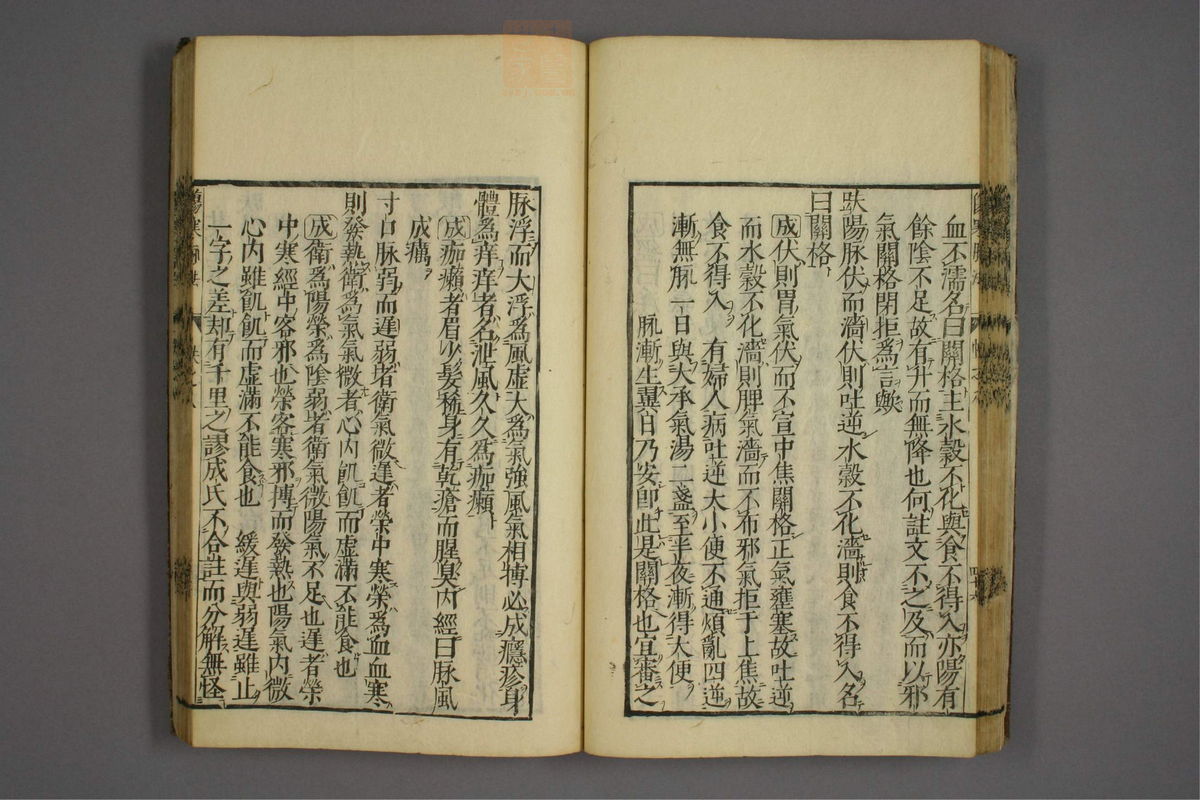 血不濡名曰關格主水穀不化與食不得入亦陽有
餘陰不足故有升而無降也何註文不之及而以邪
氣關格閉拒為言歟
趺陽脉伏而濇伏則吐逆水穀不化濇則食不得入名
曰關格
成伏則胃氣伏而不宣中焦關格正氣壅塞故吐逆
而水穀不化濇則脾氣濇而不布邪氣拒于上焦故
食不得入 有婦人病吐逆大小便不通煩亂四逆
漸無脉一日與大承氣湯二盞至半夜漸得大便
脉漸生翼日乃安即此是關格也宜審之
脉浮而大浮為風虛大為氣強風氣相摶必成癮疹身
體為痒痒者名泄風久久為痂癩
成痂癩者眉少髮稀身有乾瘡而腥臭內經曰脉風
成癘
寸口脉弱而遲弱者衛氣微遲者榮中寒榮為血血寒
則發熱衛為氣氣微者心內飢飢而虛滿不能食也
成衛為陽榮為陰弱者衛氣微陽氣不足也遲者榮
中寒經中客邪也榮客寒邪摶而發熱也陽氣內微
心內雖飢飢而虛滿不能食也 緩遲與弱遲雖止
一字之差却有千里之謬成氏不合註而分解無怪